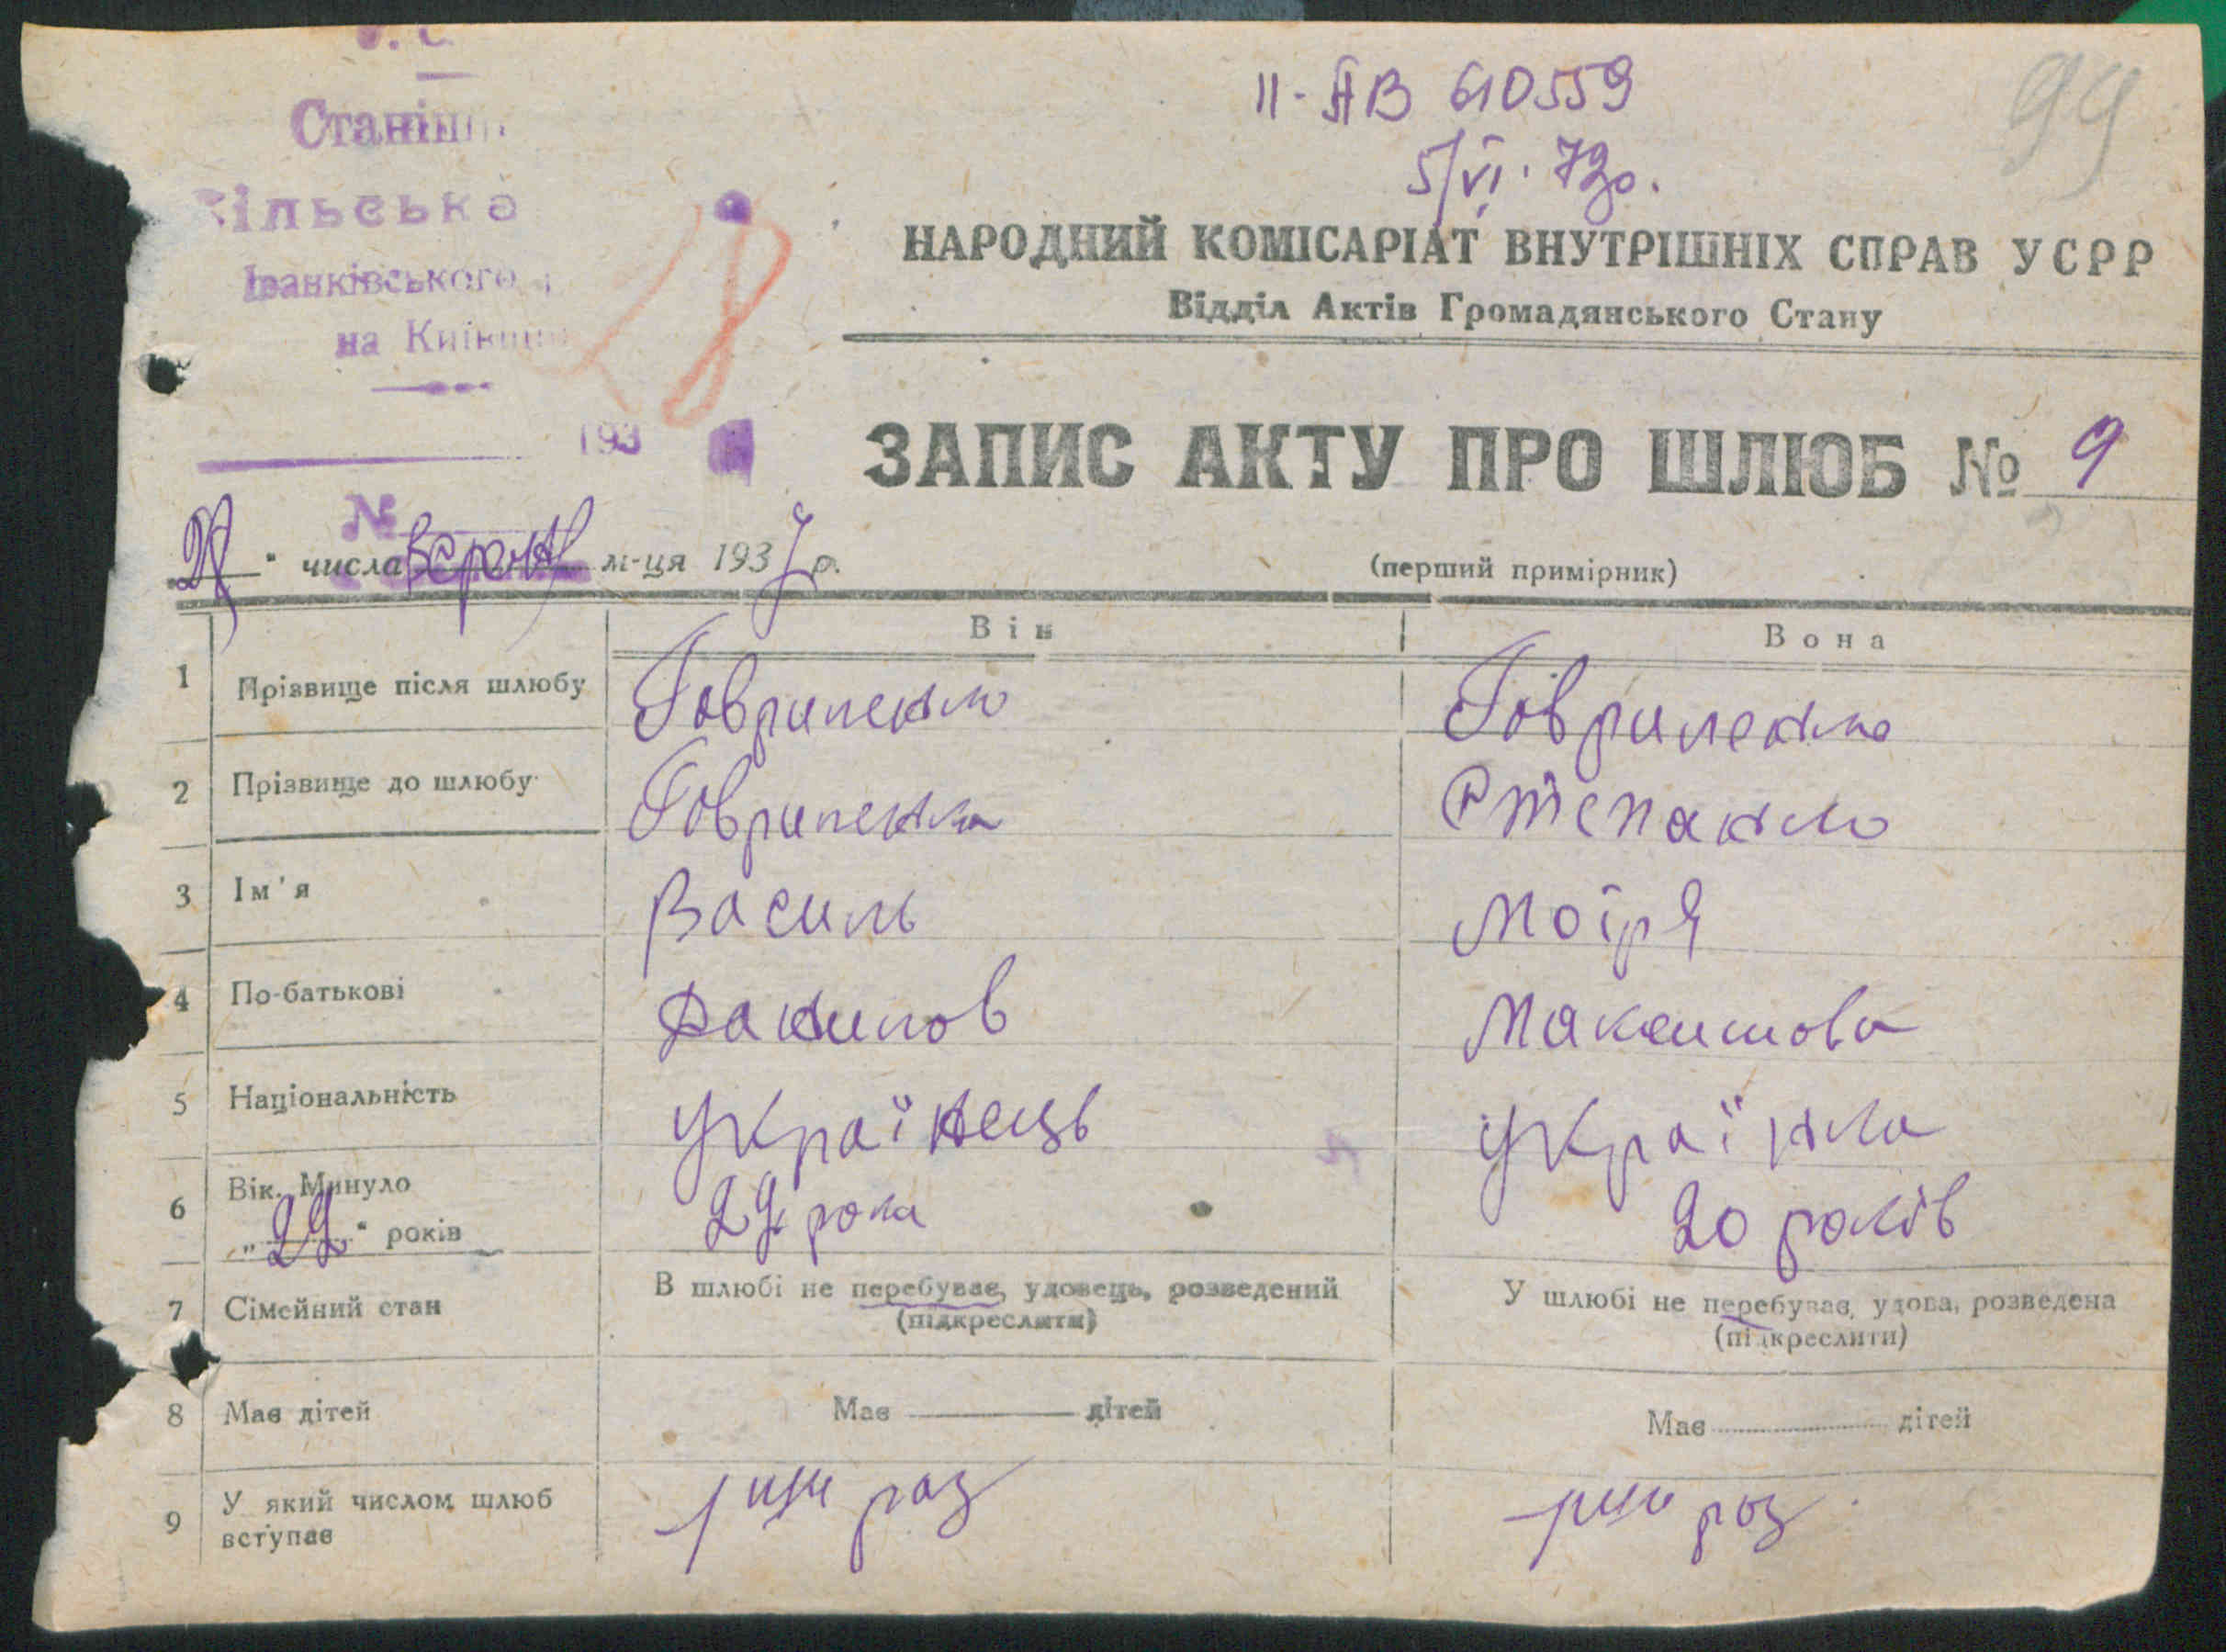 Станіш
сільська
Іванківського
на Київщи
193
№
28
ІІ-АВ 610559
5/VI. 72р.
99
НАРОДНИЙ КОМІСАРІАТ ВНУТРІШНІХ СПРАВ УСРР
Відділ Актів Громадянського Стану
ЗАПИС АКТУ ПРО ШЛЮБ № 9
числа м-ця 1937 р.
(перший примірник)
Він Вона
1 Прізвище після шлюбу Говриленко Говриленко
2 Прізвище до шлюбу Говриленко Степанко
3 Ім'я Василь Мотря
4 По-батькові Данилов Максимова
5 Національність Українець Українка
6 Вік. Минуло
„22" років 22 рока 20 років
7 Сімейний стан В шлюбі не перебуває, удовець, розведений У шлюбі не перебуває, удова, розведена
(підкреслити) (підкреслити)
8 Має дітей Має дітей Має дітей
9 У який числом шлюб
вступає 1ший раз 1ший раз